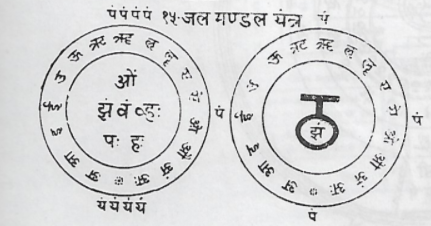 पंपंपंपं १५.जल मण्डल यंत्र पं
अ आ इ ई उ ऊ ऋ ॠ ऌ ॡ ए ऐ ओ औ अं अः
ओं
झं वं व्हः
पः हः
पं
यंयंयंयं
अ आ इ ई उ ऊ ऋ ॠ ऌ ॡ ए ऐ ओ औ अं अः
झं
पं
पं